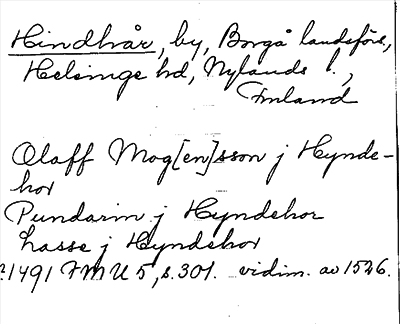 Hindhår, by, Borgå landsförs.,
Helsinge hd, Nylands l.,
Finland
Olaff Mog[en]sson j Hynde-
hor
Pundarin j Hyndehor
Lasse j Hyndehor
1491 FMU 5, s. 301. vidim. av 1526.